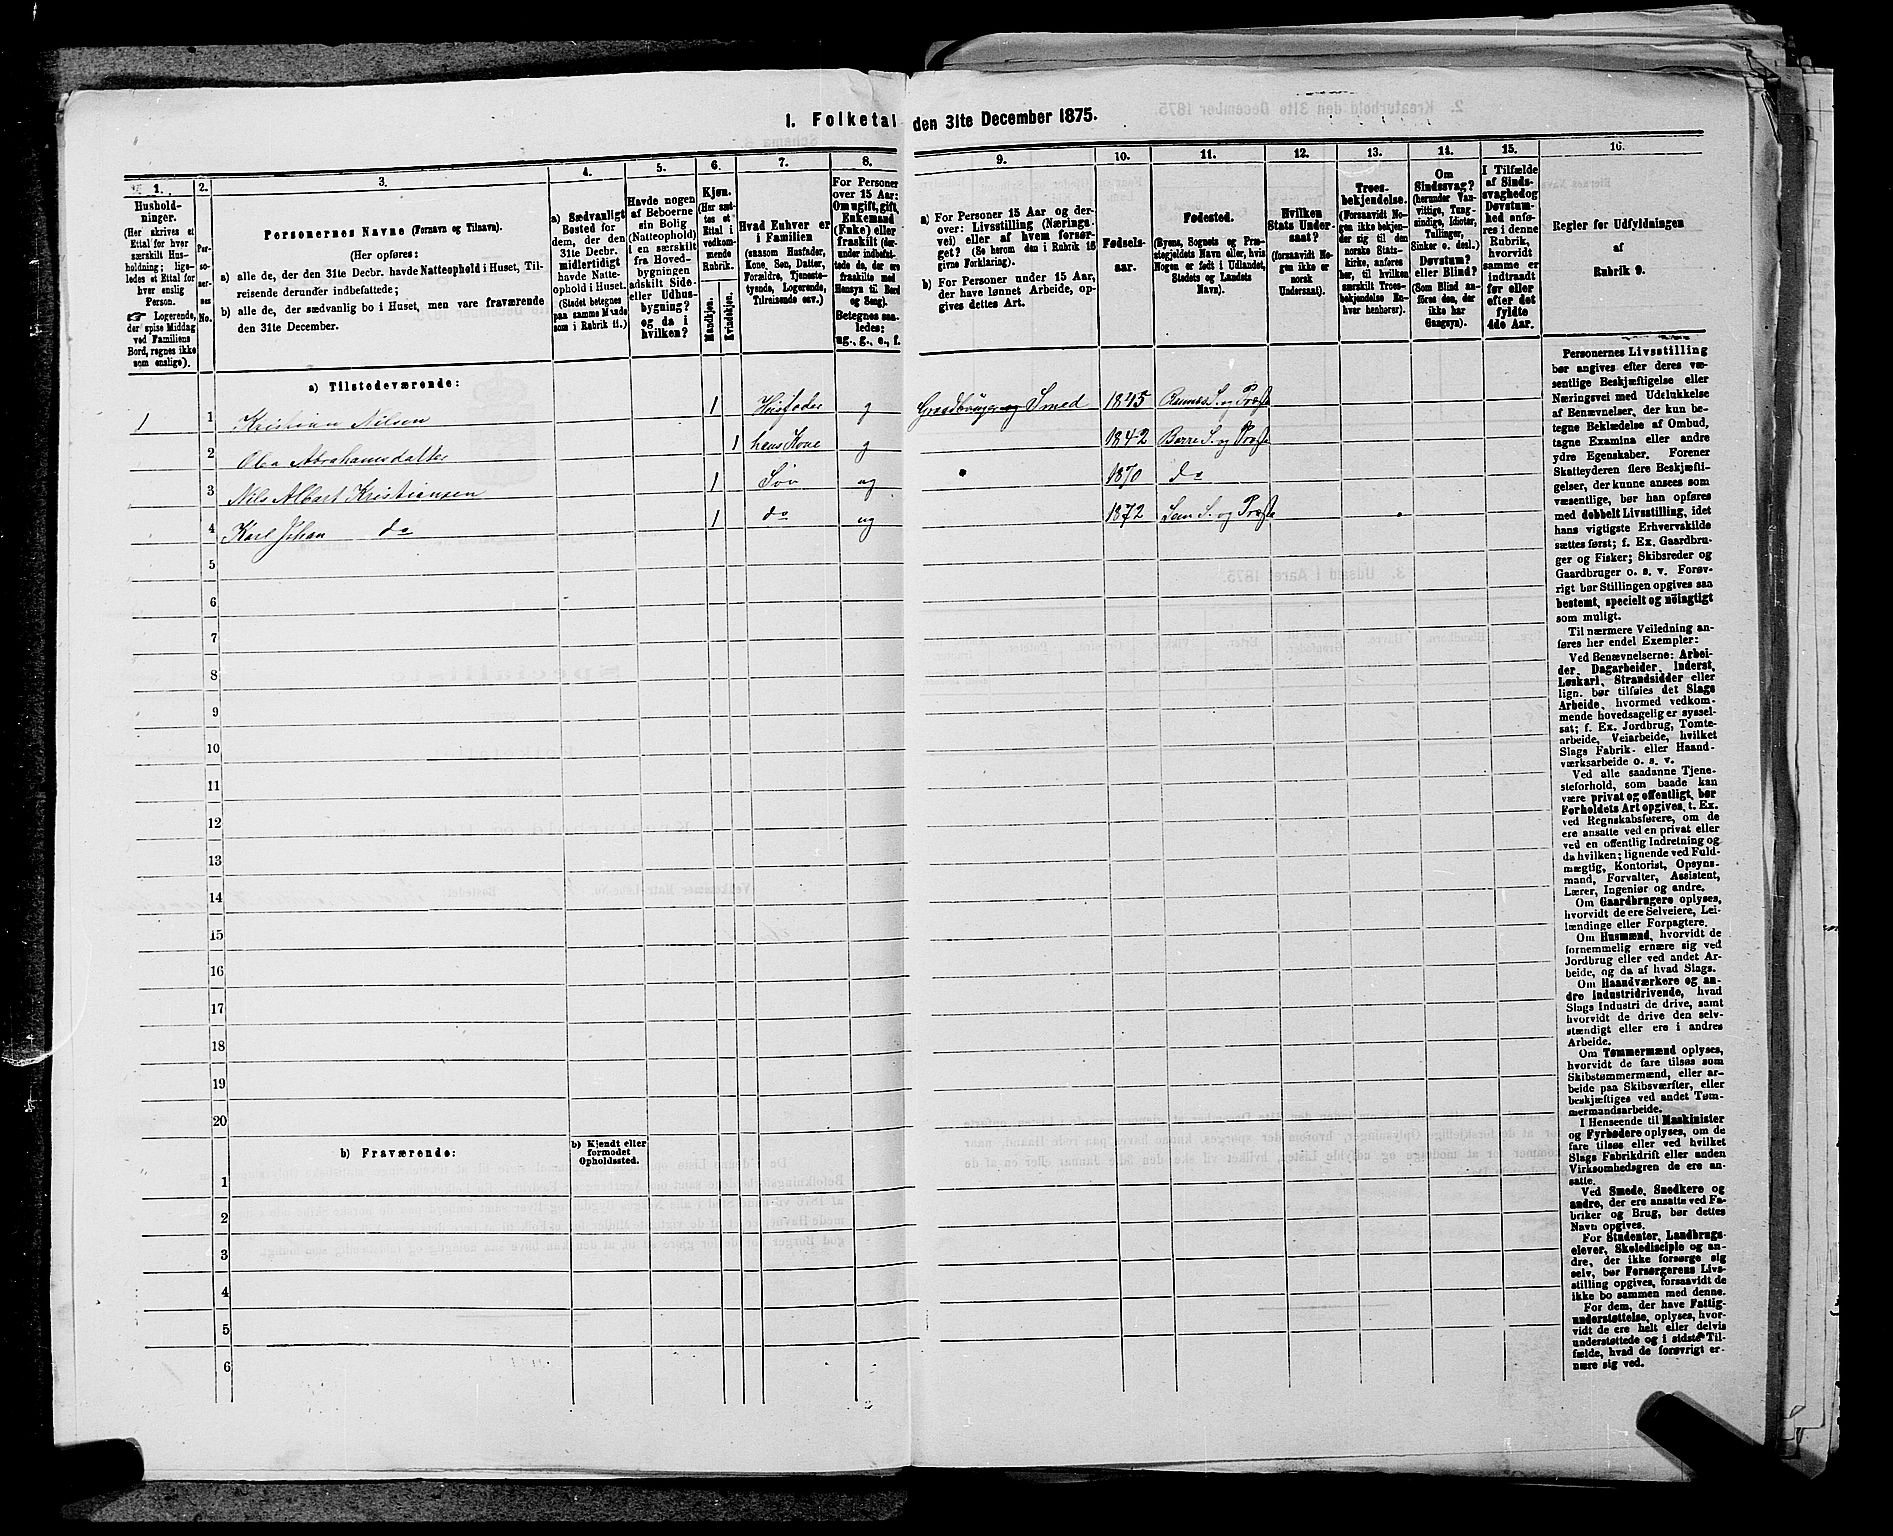 I. Folketal den 31te December 1875.
1. 2. 3. 4. 5. 6. 7. 8. 9. 10. 11. 12. 13. 14. 15. 16.
Husholdninger.
(Her skrives et
Ettal for hver
særskilt Husholdning;
ligeledes et Ettal for
hver enslig
Person.
☞ Logerende,
der spise Middag
ved Familiens
Bord, regnes ikke
som enslige).
Personernes No.
Personernes Navne (Fornavn og Tilnavn).
(Her opføres:
a) alle de, der den 31te Decbr. havde Natteophold i Huset, Tilreisende derunder indbefattede;
b) alle de, der sædvanlig bo i Huset, men vare fraværende
den 31te December.
a) Sædvanligt
Bosted for
dem, der den
31te Decbr.
midlertidigt
havde Natteophold i Huset.
(Stedet betegnes
paa samme Maade
som i Rubrik 11.)
Havde nogen
af Beboerne
sin Bolig
(Natteophold)
i en særskilt
fra Hovedbygningen
adskilt Side-
eller Udhusbygning?
og da i
hvilken?
Kjøn.
(Her sættes et
Ettal i
vedkommende
Rubrik.
Mandkjøn.
Kvindekjøn.
Hvad Enhver er
i Familien
(saasom Husfader,
Kone, Søn, Datter,
Forældre, Tjenestetyende, Logerende,
Tilreisende osv.)
For Personer
over 15 Aar:
Om ugift, gift,
Enkemand
(Enke) eller
fraskilt (derunder indbefattede de, der ere
fraskilte med
Hensyn til Bord
og Seng).
Betegnes saaledes:
ug., g., e., f.
a) For Personer 15 Aar og derover: Livsstilling (Næringsvei) eller af hvem forsørget? (Se herom den i Rubrik 16
givne Forklaring).
b) For Personer under 15 Aar,
der have lønnet Arbeide, opgives dettes Art.
Fødselsaar.
Fødested.
(Byens, Sognets og Præstegjeldets Navn eller, hvis
Nogen er født i Udlandet,
Stedets og Landets
Navn).
Hvilken
Stats Undersaat?
(forsaavidt Nogen ikke er
norsk
Undersaat).
Troesbekjendelse.
(Forsaavidt Nogen ikke bekjender sig til den
norske Statskirke, anføres
her, til hvilken
særskilt Troesbekjendelse Enhver henhører).
Om
Sindssvag?
(herunder Vanvittige, Tungsindige, Idioter,
Tullinger,
Sinker o. desl.)
Døvstum?
eller Blind?
(Som Blind anføres den, der
ikke har
Gangsyn).
I Tilfælde
af Sindssvaghed og
Døvstumhed anføres i denne
Rubrik,
hvorvidt
samme er
indtraadt
før eller
efter det
fyldte
4de Aar.
Regler for Udfyldningen
af
Rubrik 9.
a) Tilstedeværende:
1 1 Kristian Nilsen 1 Husfader g Gaardbruger og Smed 1845
2 Abrahamsdatter 1 hans Kone g 1842 Borre S. og Præstg
3 Nils Albart Kristiansen 1 Søn ug " 1870 do
4 Karl Johan do 1 do ug 1872 Sem S. og Præstg
5
6
7
8
9
10
11
12
13
14
15
16
17
18
19
20
b) Fraværende:
b) Kjendt eller
formodet
Opholdssted.
1
2
3
4
5
6
Personernes Livsstilling
bør angives efter deres væsentlige Beskjæftigelse eller
Næringsvei med Udelukkelse
af Benævnelser, der kun betegne Beklædelse af Ombud,
tagne Examina eller andre
ydre Egenskaber. Forener
Skatteyderen flere Beskjæftigelser, der kunne ansees som
væsentlige, bør han opføres
med dobbelt Livsstilling, idet
hans vigtigste Erhvervskilde
sættes først; f. Ex. Gaardbruger og Fisker; Skibsreder og
Gaardbruger o. s. v. Forøvrigt bør Stillingen opgives saa
bestemt, specielt og nöiagtigt
som muligt.
Til nærmere Veiledning anføres her endel Exempler:
Ved Benævnelserne: Arbeider, Dagarbeider, Inderst,
Løskarl, Strandsidder eller
lign. bør tilføies det Slags
Arbeide, hvormed vedkommende hovedsagelig er sysselsat; f. Ex. Jordbrug, Tomtearbeide, Veiarbeide, hvilket
Slags Fabrik- eller Haandværksarbeide o. s. v.
Ved alle saadanne Tjenesteforhold, som baade kan
være privat og offentligt, bør
Forholdets Art opgives, t. Ex.
ved Regnskabsførere, om de
ere ansatte ved en privat eller
ved en offentlig Indretning og
da hvilken; lignende ved Fuldmægtig, Kontorist, Opsynsmand, Forvalter, Assistent,
Lærer, Ingeniør og andre.
Om Gaardbrugere oplyses,
hvorvidt de ere Selveiere, Leilændinge eller Forpagtere.
Om Husmænd, hvorvidt de
fornemmelig ernære sig ved
Jordbrug eller ved andet Arbeide, og da af hvad Slags.
Om Haandværkere og andre Industridrivende, hvad
Slags Industri de drive, samt
hvorvidt de drive den selvstændigt eller ere i andres
Arbeide.
Om Tømmermænd oplyses,
hvorvidt de fare tilsøs som
Skibstømmermænd, eller arbeide paa Skibsværfter, eller
beskjæftiges ved andet Tømmermandsarbeide.
I Henseende til Maskinister
og Fyrbødere oplyses, om de
fare tilsøs eller ved hvilket
Slags Fabrikdrift eller anden
Virksomhedsgren de ere ansatte.
Ved Smede, Snedkere og
andre, der ere ansatte ved Fabriker og Brug, bør dettes
Navn opgives.
For Studenter, Landbrugselever, Skoledisciple og andre, der ikke forsørge sig
selv, bør Forsørgerens Livsstilling opgives, forsaavidt de
ikke bo sammen med denne.
For dem, der have Fattigunderstøttelse, oplyses, hvorvidt de ere helt eller delvis
understøttede og i sidste Tilfælde, hvad de forøvrigt ernære sig ved.